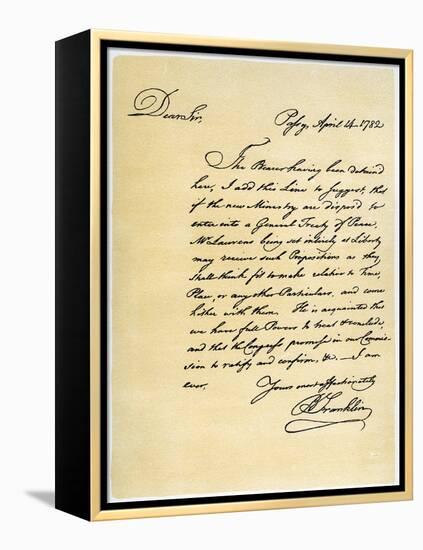 Passy, April 14 1782
Dear Sir,
The Bearer having been detained
here, I add this Line to suggest, that
if the new Ministry are disposed to
enter into a General Treaty of Peace,
Mr Laurens being set intirely at Liberty
may receive such Propositions as they
shall think fit to make relative to Time,
Place, or any other Particulars, and come
hither with them. He is acquainted that
we have full Powers to treat & conclude,
and that the Congress promise in our Commis-
sion to ratify and confirm, &c. — I am
ever,
Yours most affectionately
B Franklin